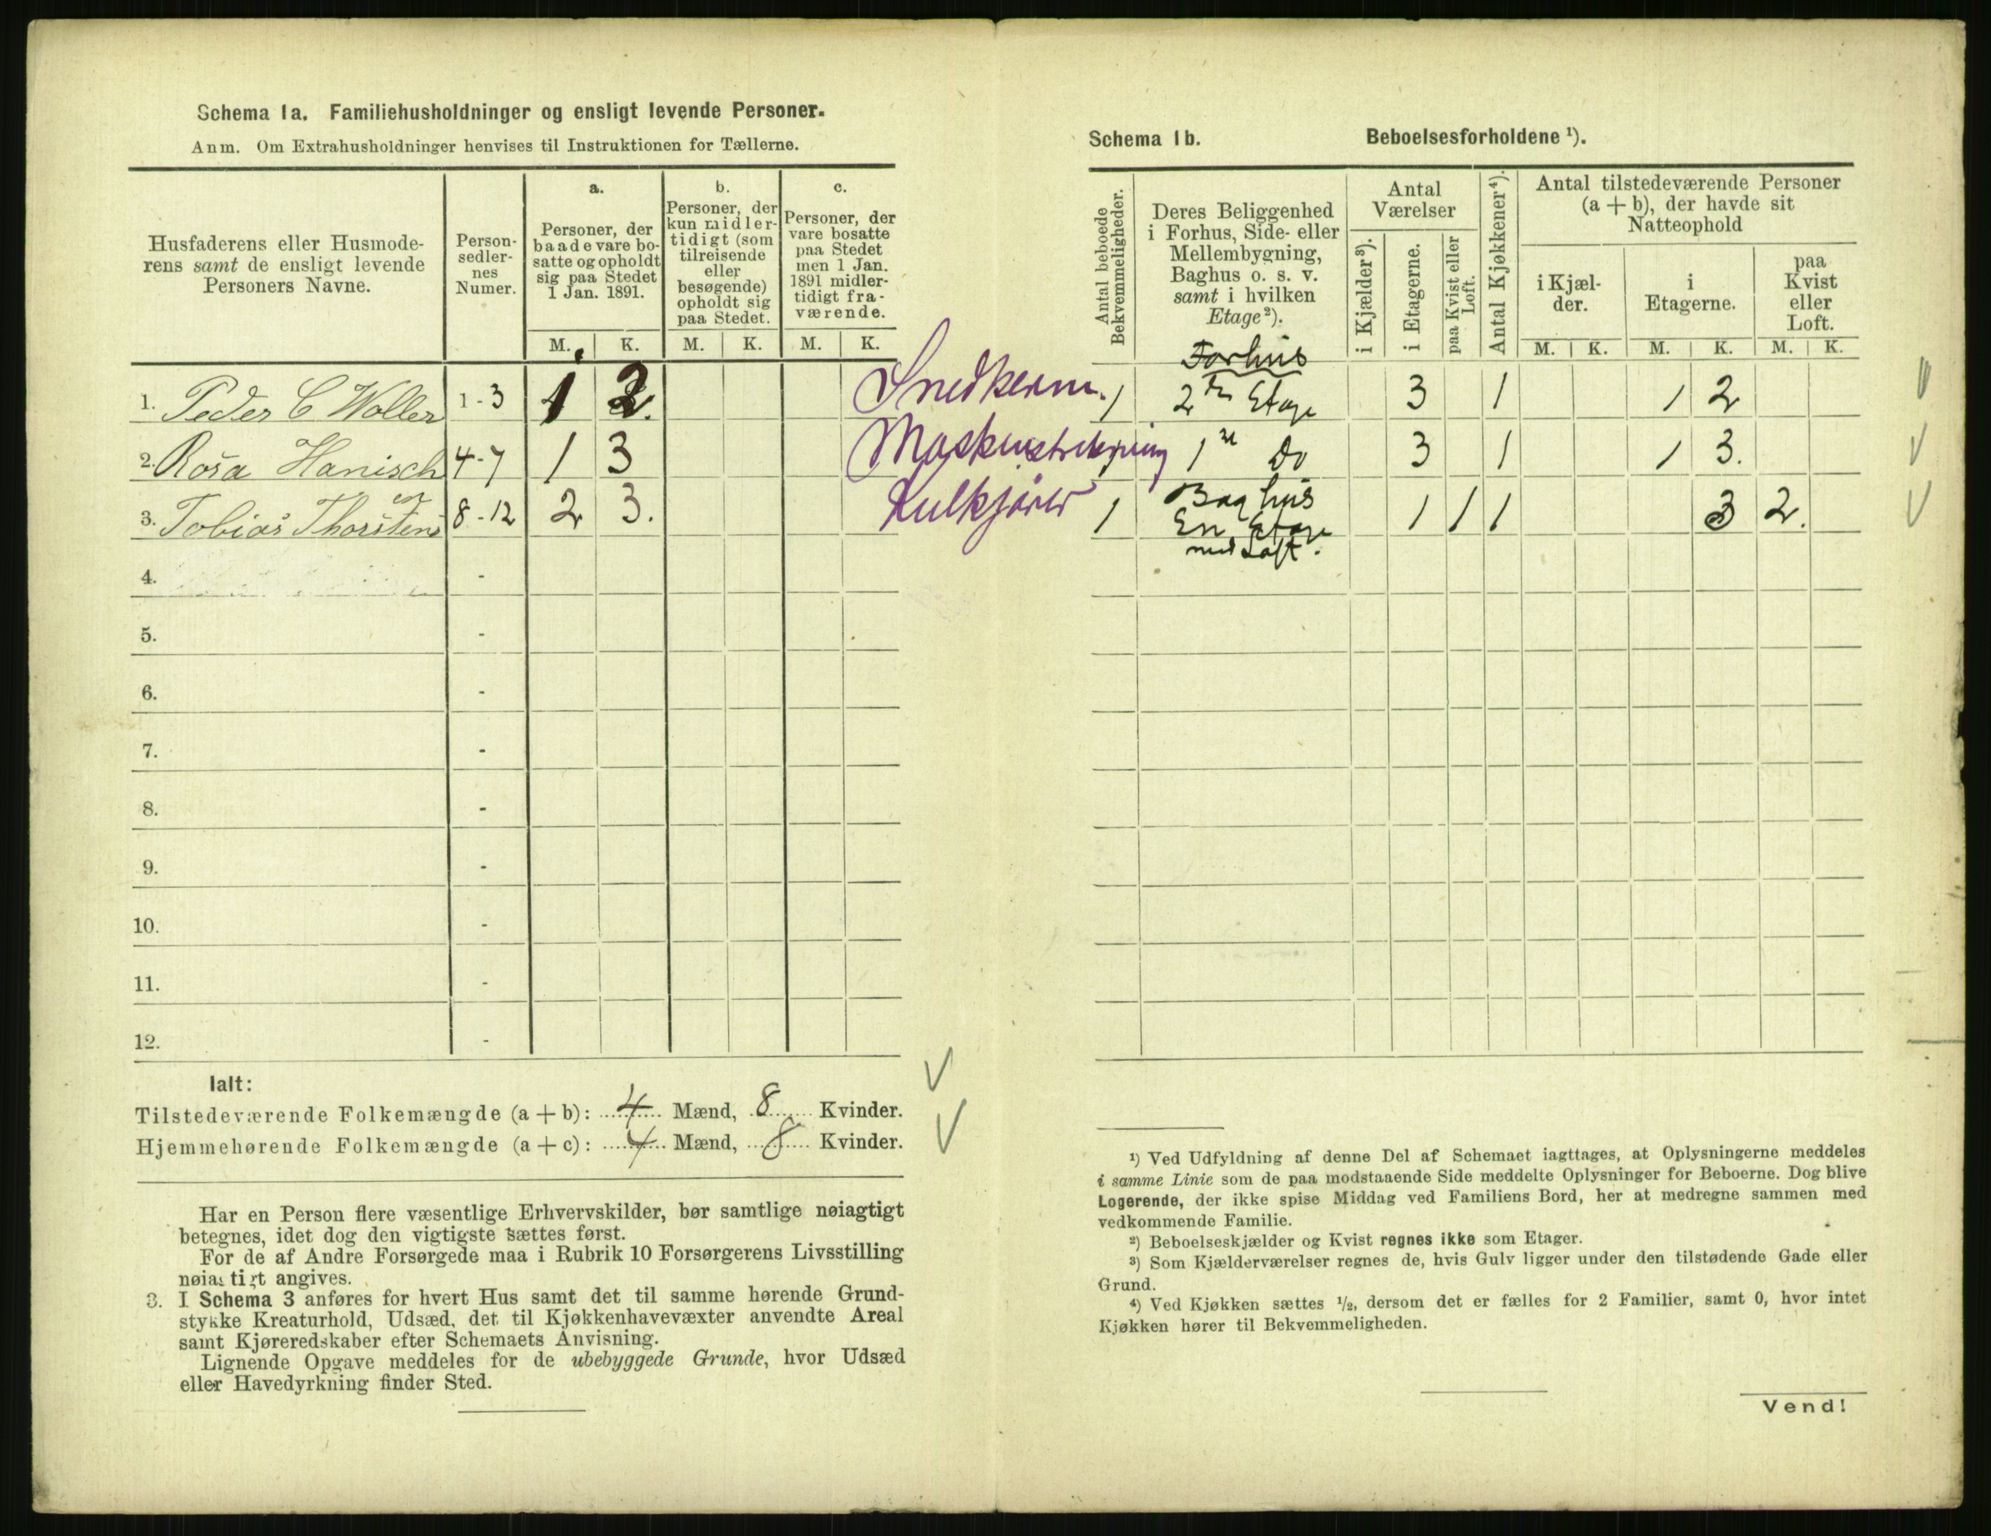 Schema 1a. Familiehusholdninger og ensligt levende Personer.
Anm. Om Extrahusholdninger henvises til Instruktionen for Tællerne.
Husfaderens eller Husmode-
rens samt de ensligt levende
Personers Navne.
Person-
sedler-
nes
Numer.
a.
Personer, der
baade vare bo-
satte og opholdt
sig paa Stedet
1 Jan. 1891.
b.
Personer, der
kun midler-
tidigt (som
tilreisende
eller
besøgende)
opholdt sig
paa Stedet.
c.
Personer, der
vare bosatte
paa Stedet
men 1 Jan.
1891 midler-
tidigt fra-
værende.
M. K. M. K. M. K.
1. Peder C Woller 1-3 1 2. Snedkerm.
2. Rosa Hanisch 4-7 1 3
3. Tobias Thorstensen 8-12 2 3. Kulkjører
4. -
5. -
6. -
7. -
8. -
9. -
10. -
11. -
12. -
Ialt:
Tilstedeværende Folkemængde (a + b): 4 Mænd, 8 Kvinder.
Hjemmehørende Folkemængde (a + c): 4 Mænd, 8 Kvinder.
Har en Person flere væsentlige Erhvervskilder, bør samtlige nøiagtigt
betegnes, idet dog den vigtigste sættes først.
For de af Andre Forsørgede maa i Rubrik 10 Forsørgerens Livsstilling
nøiagtigt angives.
3. I Schema 3 anføres for hvert Hus samt det til samme hørende Grund-
stykke Kreaturhold, Udsæd, det til Kjøkkenhavevæxter anvendte Areal
samt Kjøreredskaber efter Schemaets Anvisning.
Lignende Opgave meddeles for de ubebyggede Grunde, hvor Udsæd
eller Havedyrkning finder Sted.
Schema 1b. Beboelsesforholdene ¹).
Antal beboede
Bekvemmeligheder.
Deres Beliggenhed
i Forhus, Side- eller
Mellembygning,
Baghus o. s. v.
samt i hvilken
Etage²).
Antal
Værelser
i Kjælder³).
i Etagerne.
paa Kvist eller
Loft.
Antal Kjøkkener⁴).
Antal tilstedeværende Personer
(a + b), der havde sit
Natteophold
i Kjæl-
der.
i
Etagerne.
paa
Kvist
eller
Loft.
M. K. M. K. M. K.
Forhus
1 2den Etage 3 1 1 2
1 Do 3 1 1 3.
Baghus
1 En Etage 1 1 1 3 2.
med Loft.
¹) Ved Udfyldning af denne Del af Schemaet iagttages, at Oplysningerne meddeles
i samme Linie som de paa modstaaende Side meddelte Oplysninger for Beboerne. Dog blive
Logerende, der ikke spise Middag ved Familiens Bord, her at medregne sammen med
vedkommende Familie.
²) Beboelseskjælder og Kvist regnes ikke som Etager.
³) Som Kjælderværelser regnes de, hvis Gulv ligger under den tilstødende Gade eller
Grund.
⁴) Ved Kjøkken sættes ½, dersom det er fælles for 2 Familier, samt 0, hvor intet
Kjøkken hører til Bekvemmeligheden.
Vend!